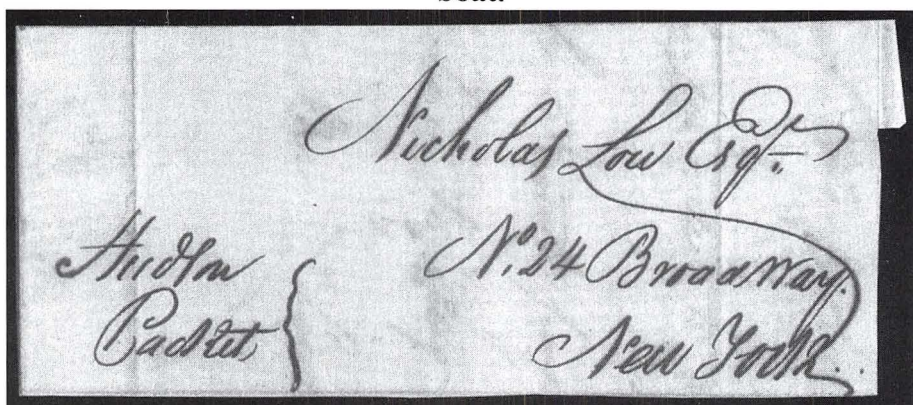 Nicholas Low Esqr.
No. 24 Broadway.
New York.
Hudson
Packet